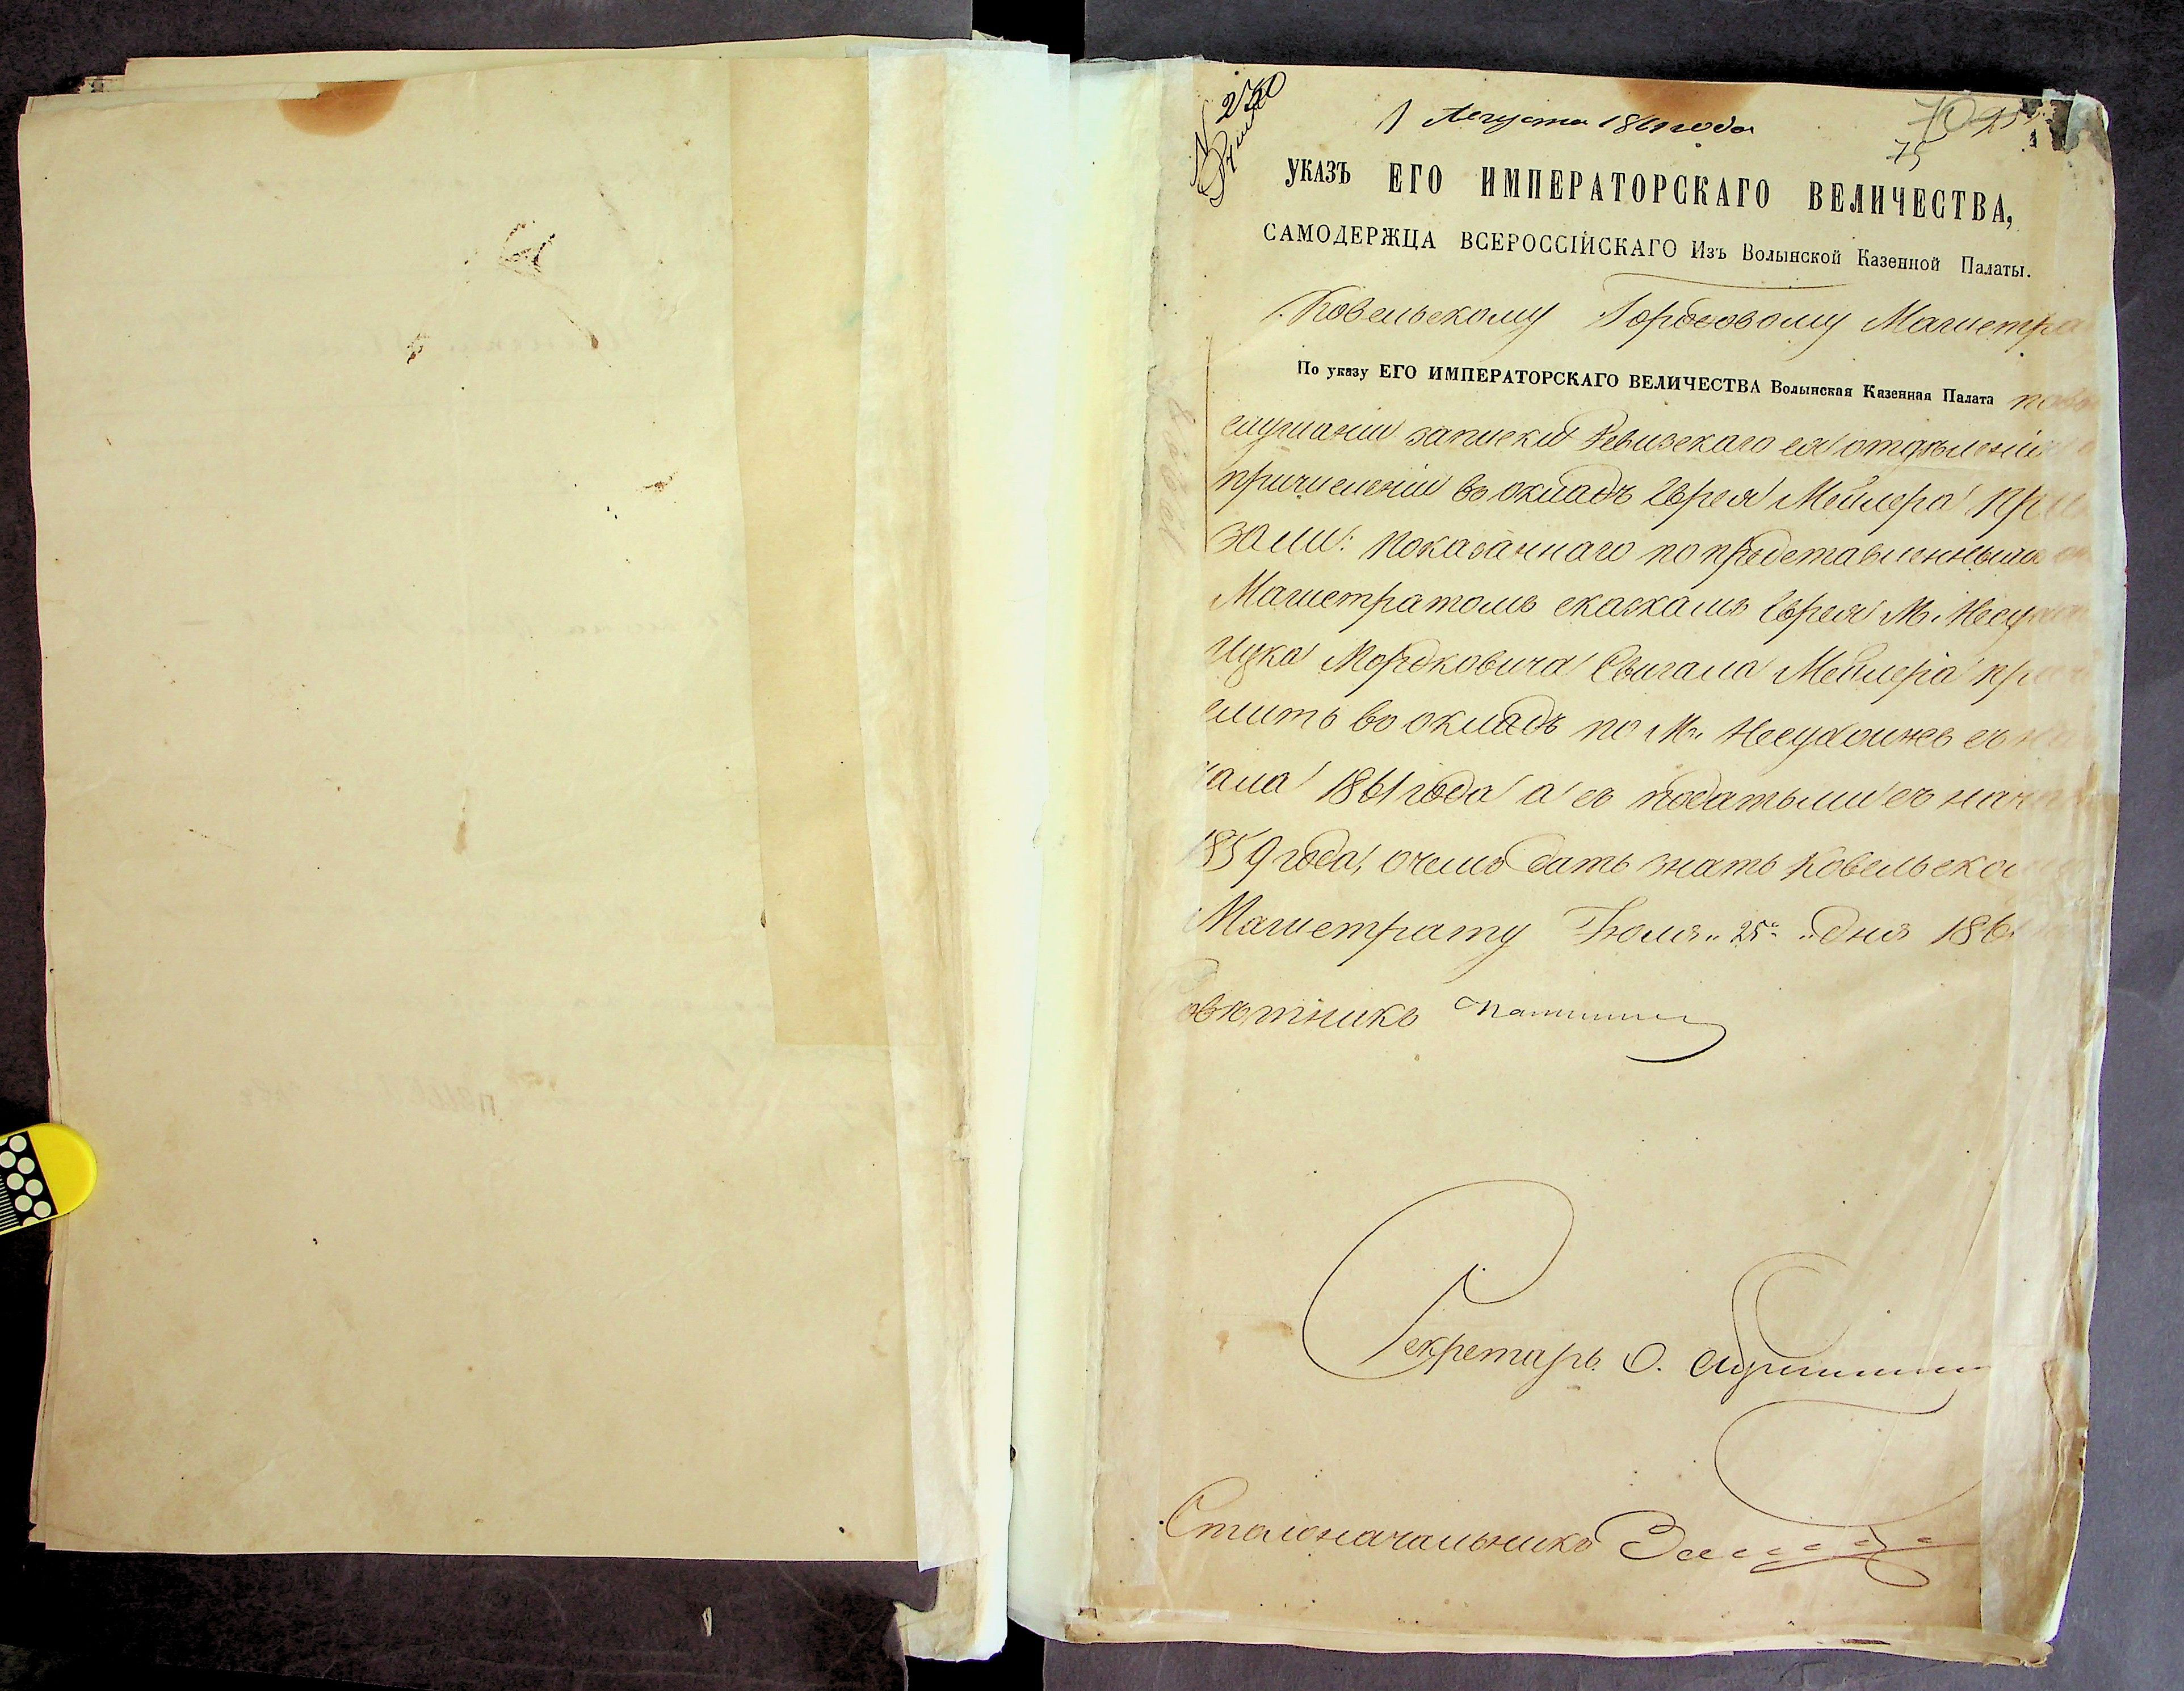 1 Августа 1861 года
УКАЗЪ ЕГО ИМПЕРАТОРСКАГО ВЕЛИЧЕСТВА,
САМОДЕРЖЦА ВСЕРОССІЙСКАГО Изъ Волынской Казенной Палаты.
Ковельскому Городовому Магистра
По указу ЕГО ИМПЕРАТОРСКАГО ВЕЛИЧЕСТВА Волынская Казенная Палата по
слушаніи записки Ревизскаго ея отдѣленія о
причисленіи въ окладъ Еврея Мейлера При
зали: показаннаго по представленнымъ
Магистратомъ сказкамъ Еврея М. Несухои
Ицка Мордковича Свигала Мейлера при
слить въ окладъ по М. Несухоиже съ на
чала 1861 года а съ податьми съ нача
1859 года, о чемъ дать знать Ковельско
Магистрату Іюля „25" дня 186
Совѣтникъ
Секретарь О.
Столоначальникъ